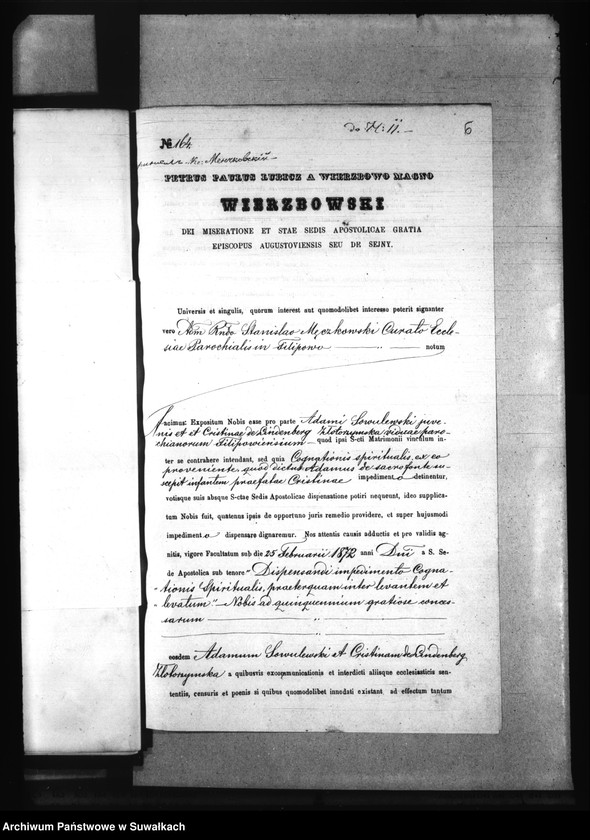 do N: 11. — 6
№ 164
Кс: Мечковскій —
PETRUS PAULUS LUBICZ A WIERZBOWO MAGNO
WIERZBOWSKI
DEI MISERATIONE ET STAE SEDIS APOSTOLICAE GRATIA
EPISCOPUS AUGUSTOVIENSIS SEU DE SEJNY.
Universis et singulis, quorum interest aut quomodolibet interesse poterit signanter
vero Adm Rndo Stanislao Męczkowski Curato Eccle-
siae Parochialis in Filipowo — „ — notum
facimus: Expositum Nobis esse pro parte Adami Sowulewski juve-
nis et et Cristinae de Lindenberg Złotorzymska viduae paro-
chianorum Filipowiensium — quod ipsi S-cti Matrimonii vinclum in-
ter se contrahere intendant, sed quia Cognationis spiritualis, ex eo
proveniente, quod dictus Adamus de sacro fonte su-
scepit infantem praefatae Cristinae impedimento detinentur,
votisque suis absque S-ctae Sedis Apostolicae dispensatione potiri nequeunt, ideo supplica-
tum Nobis fuit, quatenus ipsis de opportuno juris remedio providere, et super hujusmodi
impedimento dispensare dignaremur. Nos attentis causis adductis et pro validis ag-
nitis, vigore Facultatum sub die 25 Februarii 1872 anni Dnî a S. Se-
de Apostolica sub tenore „Dispensandi impedimento Cogna-
„tionis Spiritualis, praeterquam inter levantem et
„levatum" — Nobis ad quinquennium gratiose conces-
sarum — „ —
eosdem Adamum Sowulewski et Cristinam de Lindenberg
Złotorzymska a quibusvis excommunicationis et interdicti aliisque ecclesiasticis sen-
tentiis, censuris et poenis si quibus quomodolibet innodati existant, ad effectum tantum
Archiwum Państwowe w Suwałkach